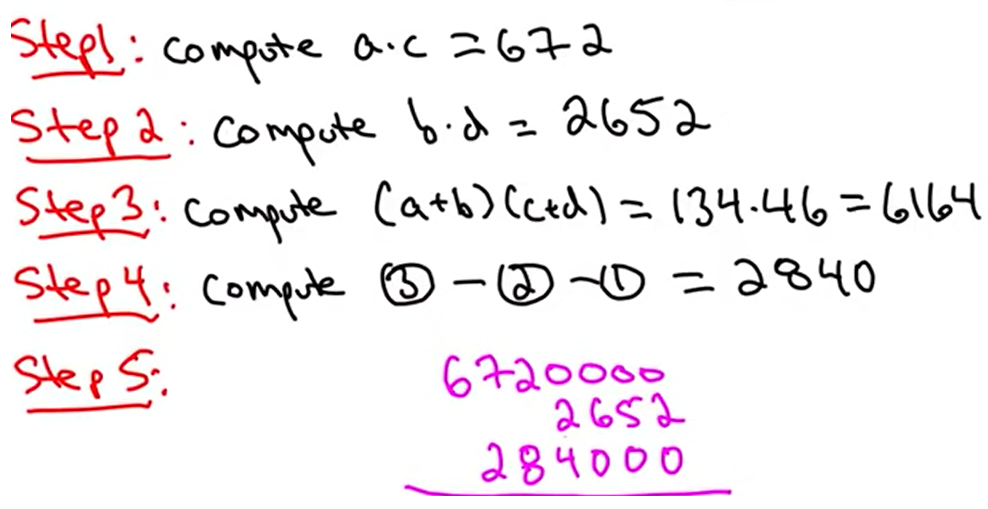 Step1: compute a·c = 672
Step 2: compute b·d = 2652
Step3: compute (a+b)(c+d) = 134·46 = 6164
Step 4: compute ③ - ② - ① = 2840
Step 5:
6720000
2652
284000